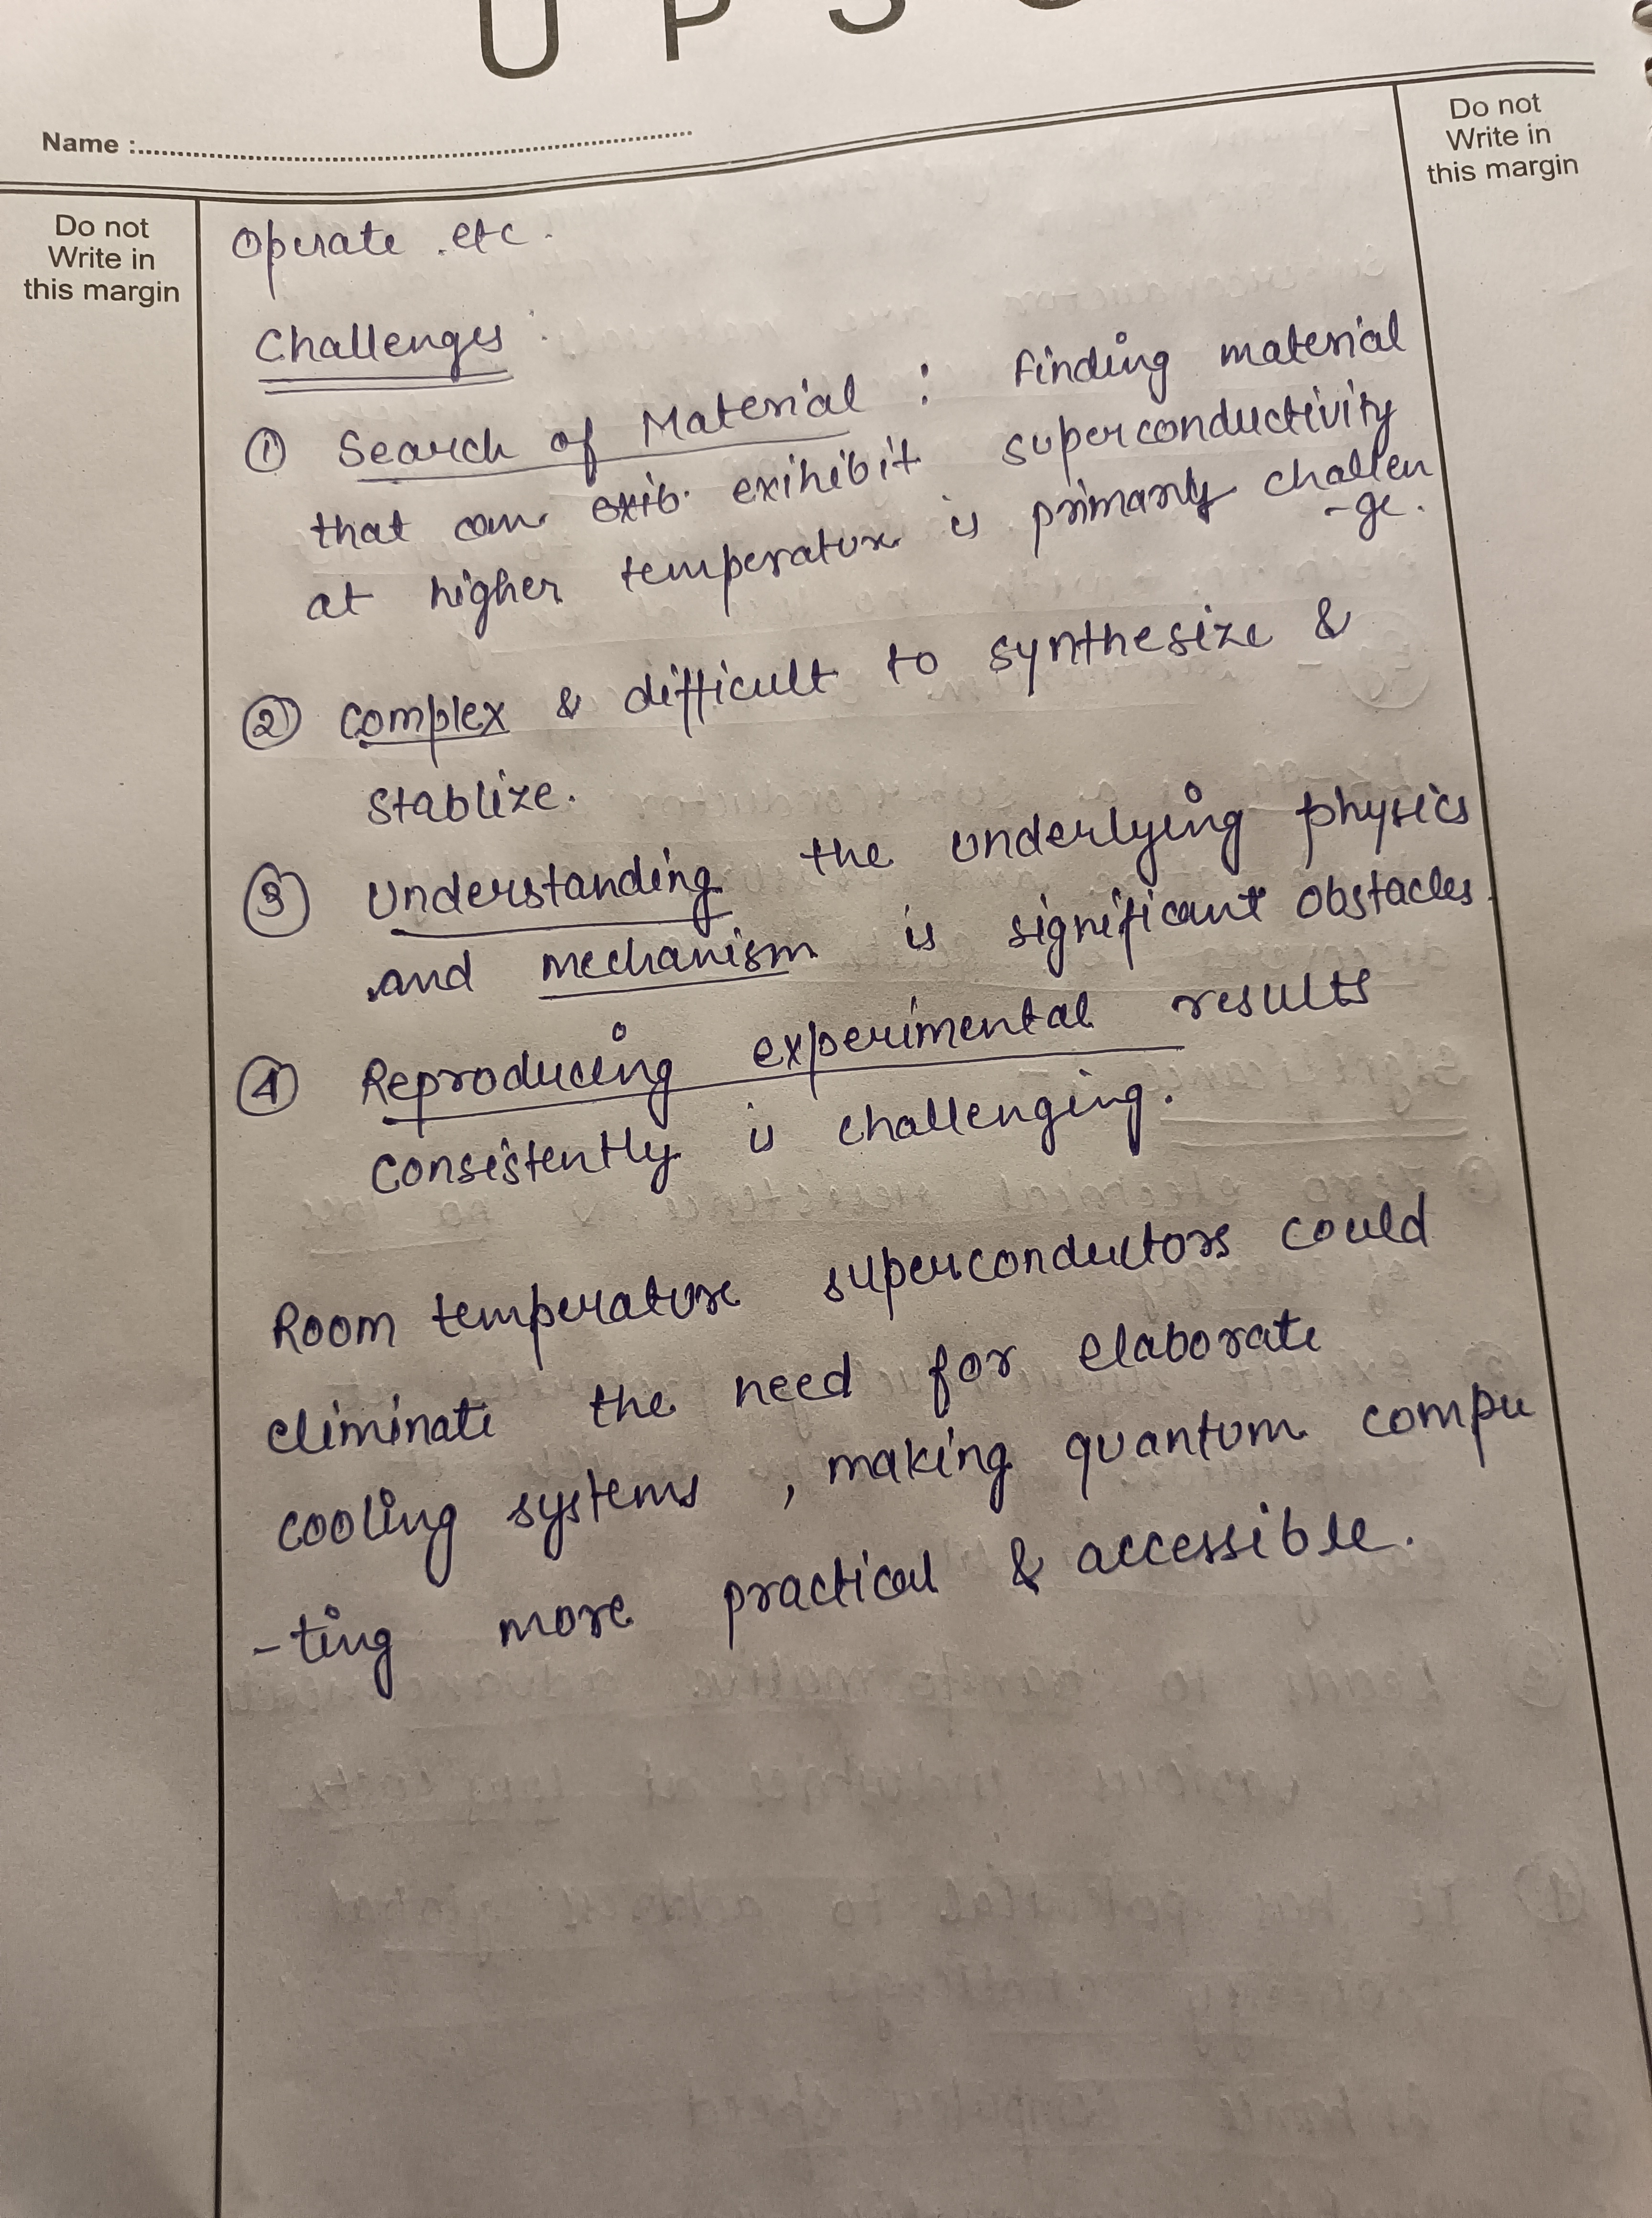 UPSC
Name :
Do not
Write in
this margin
Do not
Write in
this margin
Operate etc.
Challenges :
① Search of Material : Finding material
that can exib. exihibit superconductivity
at higher temperature is primarly challen
-ge.
② Complex & difficult to synthesize &
stablize.
③ Understanding the underlying physics
and mechanism is significant obstacles.
④ Reproducing experimental results
consistently is challenging.
Room temperature superconductors could
eliminate the need for elaborate
cooling systems , making quantum compu
-ting more practical & accessible.